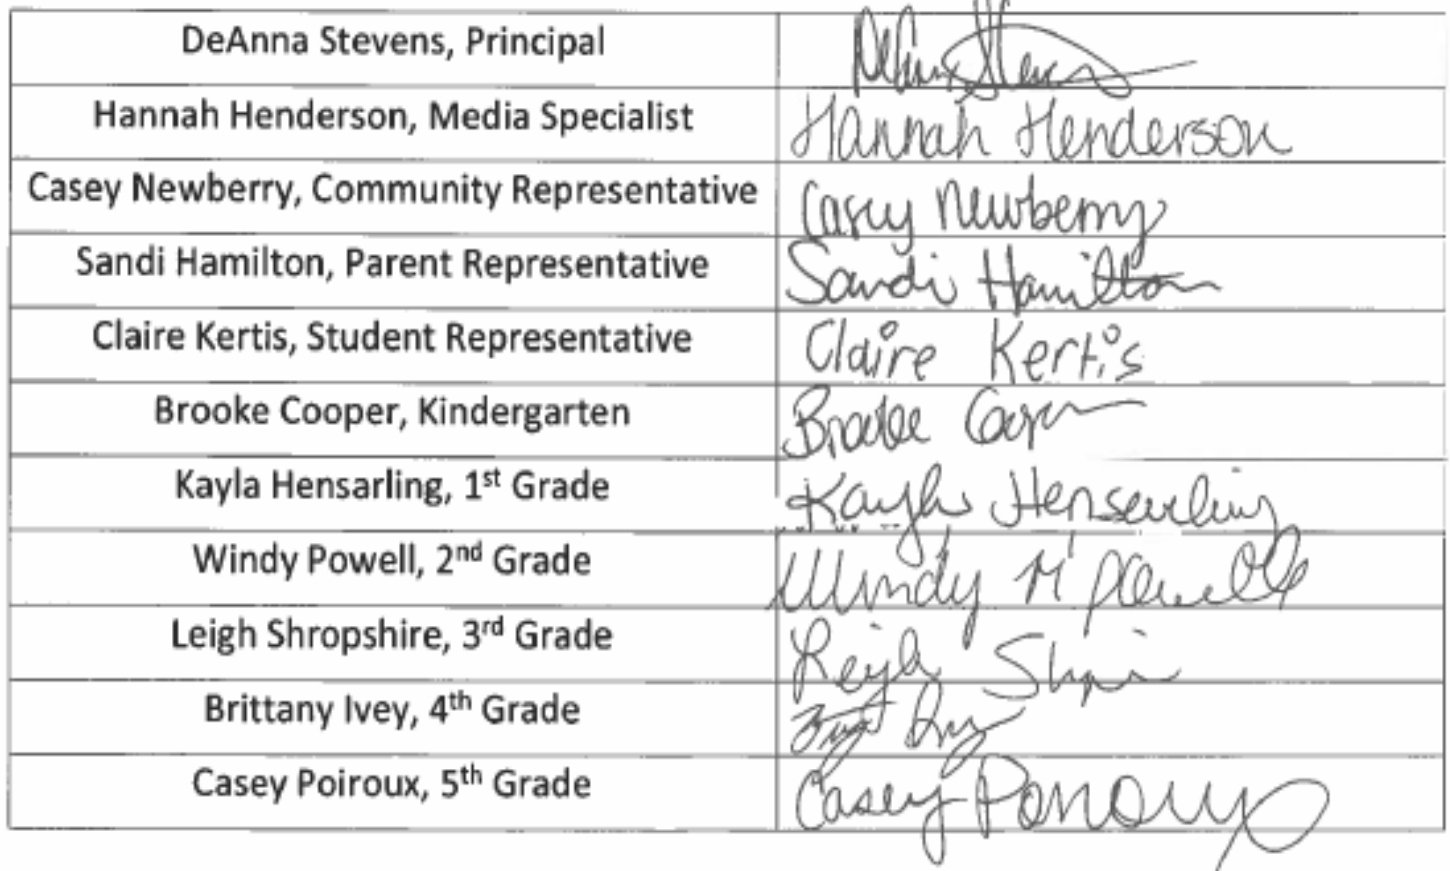 DeAnna Stevens, Principal DeAnna Stevens
Hannah Henderson, Media Specialist Hannah Henderson
Casey Newberry, Community Representative Casey Newberry
Sandi Hamilton, Parent Representative Sandi Hamilton
Claire Kertis, Student Representative Claire Kertis
Brooke Cooper, Kindergarten Brooke Cooper
Kayla Hensarling, 1st Grade Kayla Hensarling
Windy Powell, 2nd Grade Windy M Powell
Leigh Shropshire, 3rd Grade Leigh
Brittany Ivey, 4th Grade
Casey Poiroux, 5th Grade Casey Poiroux